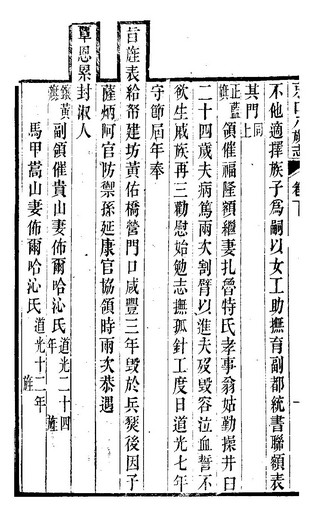 京口八旗志 卷下
不他適擇族子為嗣以女工助撫育副都統書聯額表
其門上同
正藍旗領催福隆額繼妻扎魯特氏孝事翁姑勤操井臼
二十四歲夫病篤兩次割臂以進夫歿毀容泣血誓不
欲生戚族再三勸慰始勉志撫孤針工度日道光七年
守節屆年奉
旨旌表給帑建坊黃佑橋營門口咸豐三年毀於兵燹後因子
薩炳阿官防禦孫延康官協領時兩次恭遇
覃恩累封淑人
鑲黃旗副領催貴山妻佈爾哈沁氏道光二十四年旌
馬甲嵩山妻佈爾哈沁氏道光十二年旌